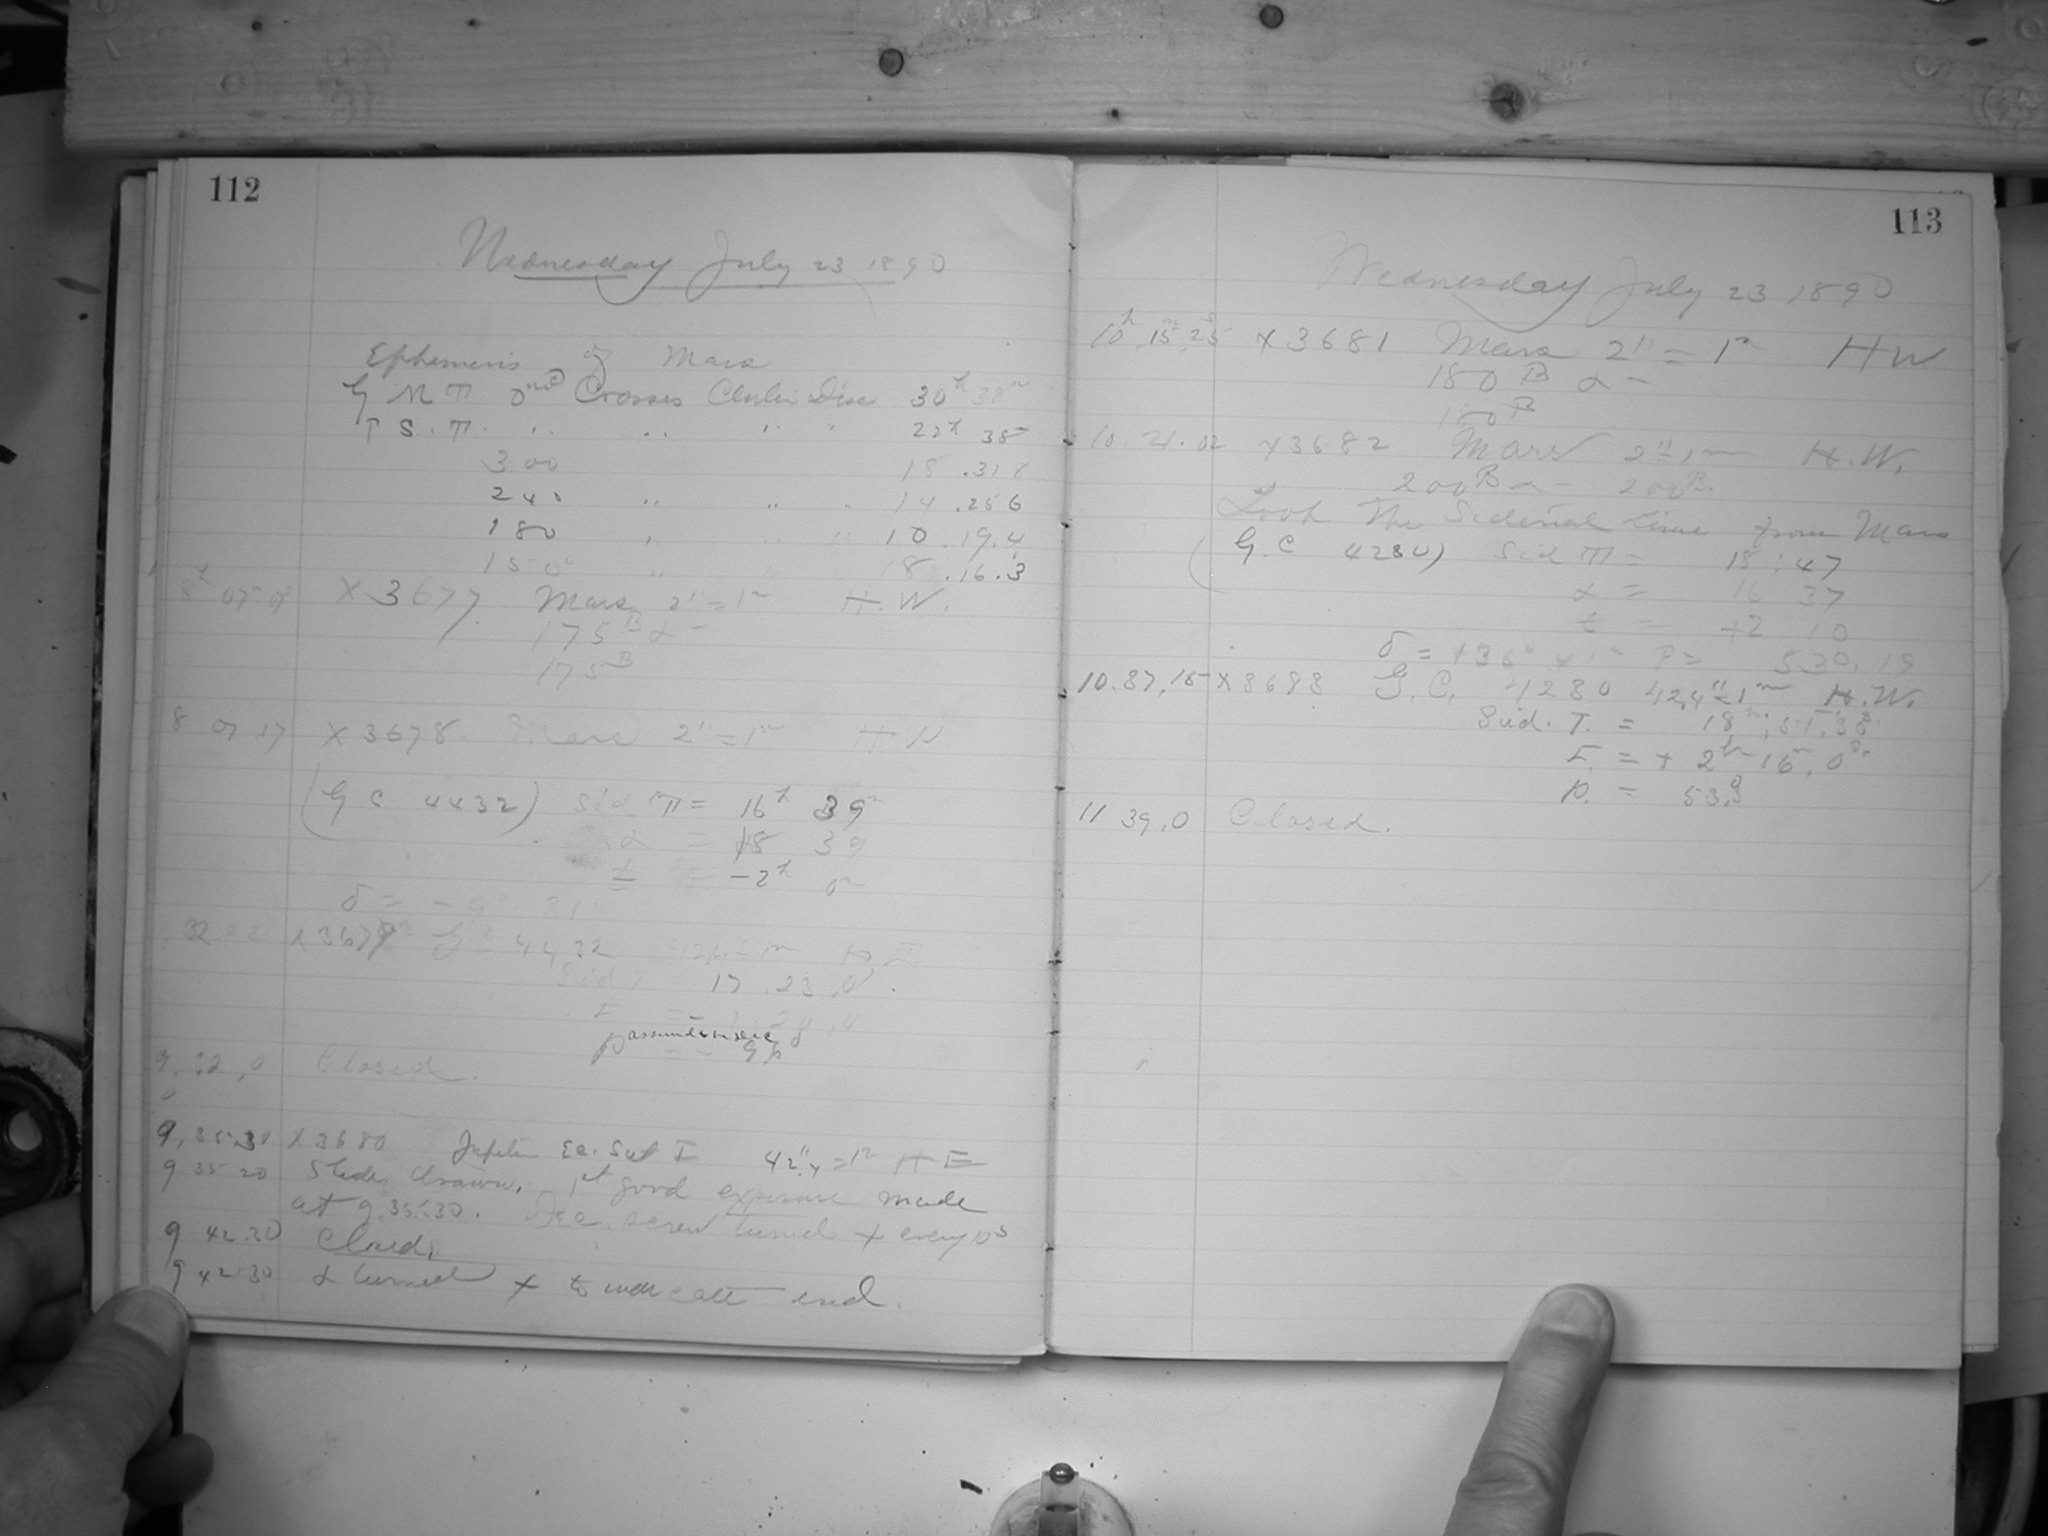 112
Wednesday July 23 1890
Ephemeris of Mars
G M T 0 Crosses Center Disc 30h 38m
P S. T. " " " " 22h 38m
300 18 .318
240 " " " 14 .256
180 " " " 10 .19.4
150 " " 8 .16.3
8h 07 X3677 Mars 2"=1m H.W.
175B α-
175B
8 07 17 X3678 Mars 2"=1m H W
(G. C 4432) Sid T = 16h 39m
α = 18 39
t = -2h 0m
δ = - 9 31
32 22 X3679 G C 4432 42,4"=1m
Sid 17 .23 ,0
p =
9, 32 ,0 Closed.
9, 35 30 X3680 Jupiter Ec. Sat I 42".4=1m H E
9 35 20 Slide drawn. 1st good exposure made
at 9 35:30. Dec. screw turned + every 10s
9 42.30 Closed,
9 42.30 α turned + to indicate end.
113
Wednesday July 23 1890
10h 15m 25s X3681 Mars 2"=1m H W
180 B α-
180B
10. 21. 02 X3682 Mars 2"=1m H.W.
200B α- 200B.
Took the Siderial time from Mars
(G. C 4230) Sid T = 18 : 47
α = 16 37
t = +2 10
δ = +36° P = 530. 19
10.37,15 X3683 G. C. 4230 42,4"=1m H.W.
Sid. T. = 18h, 51m, 38s
T. = + 2h 16m, 0s.
p. = 53,9
11 39,0 Closed.